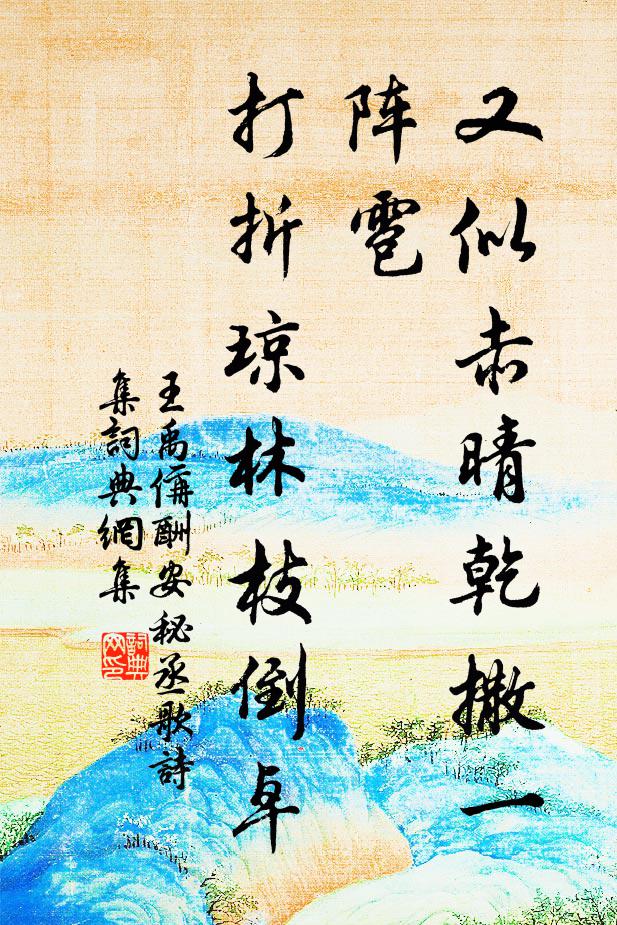 又似赤晴乾撒一
阵雹
打折琼林枝倒卓
王禹偁酬安秘丞歌詩
集詞典網集
詞典
网印